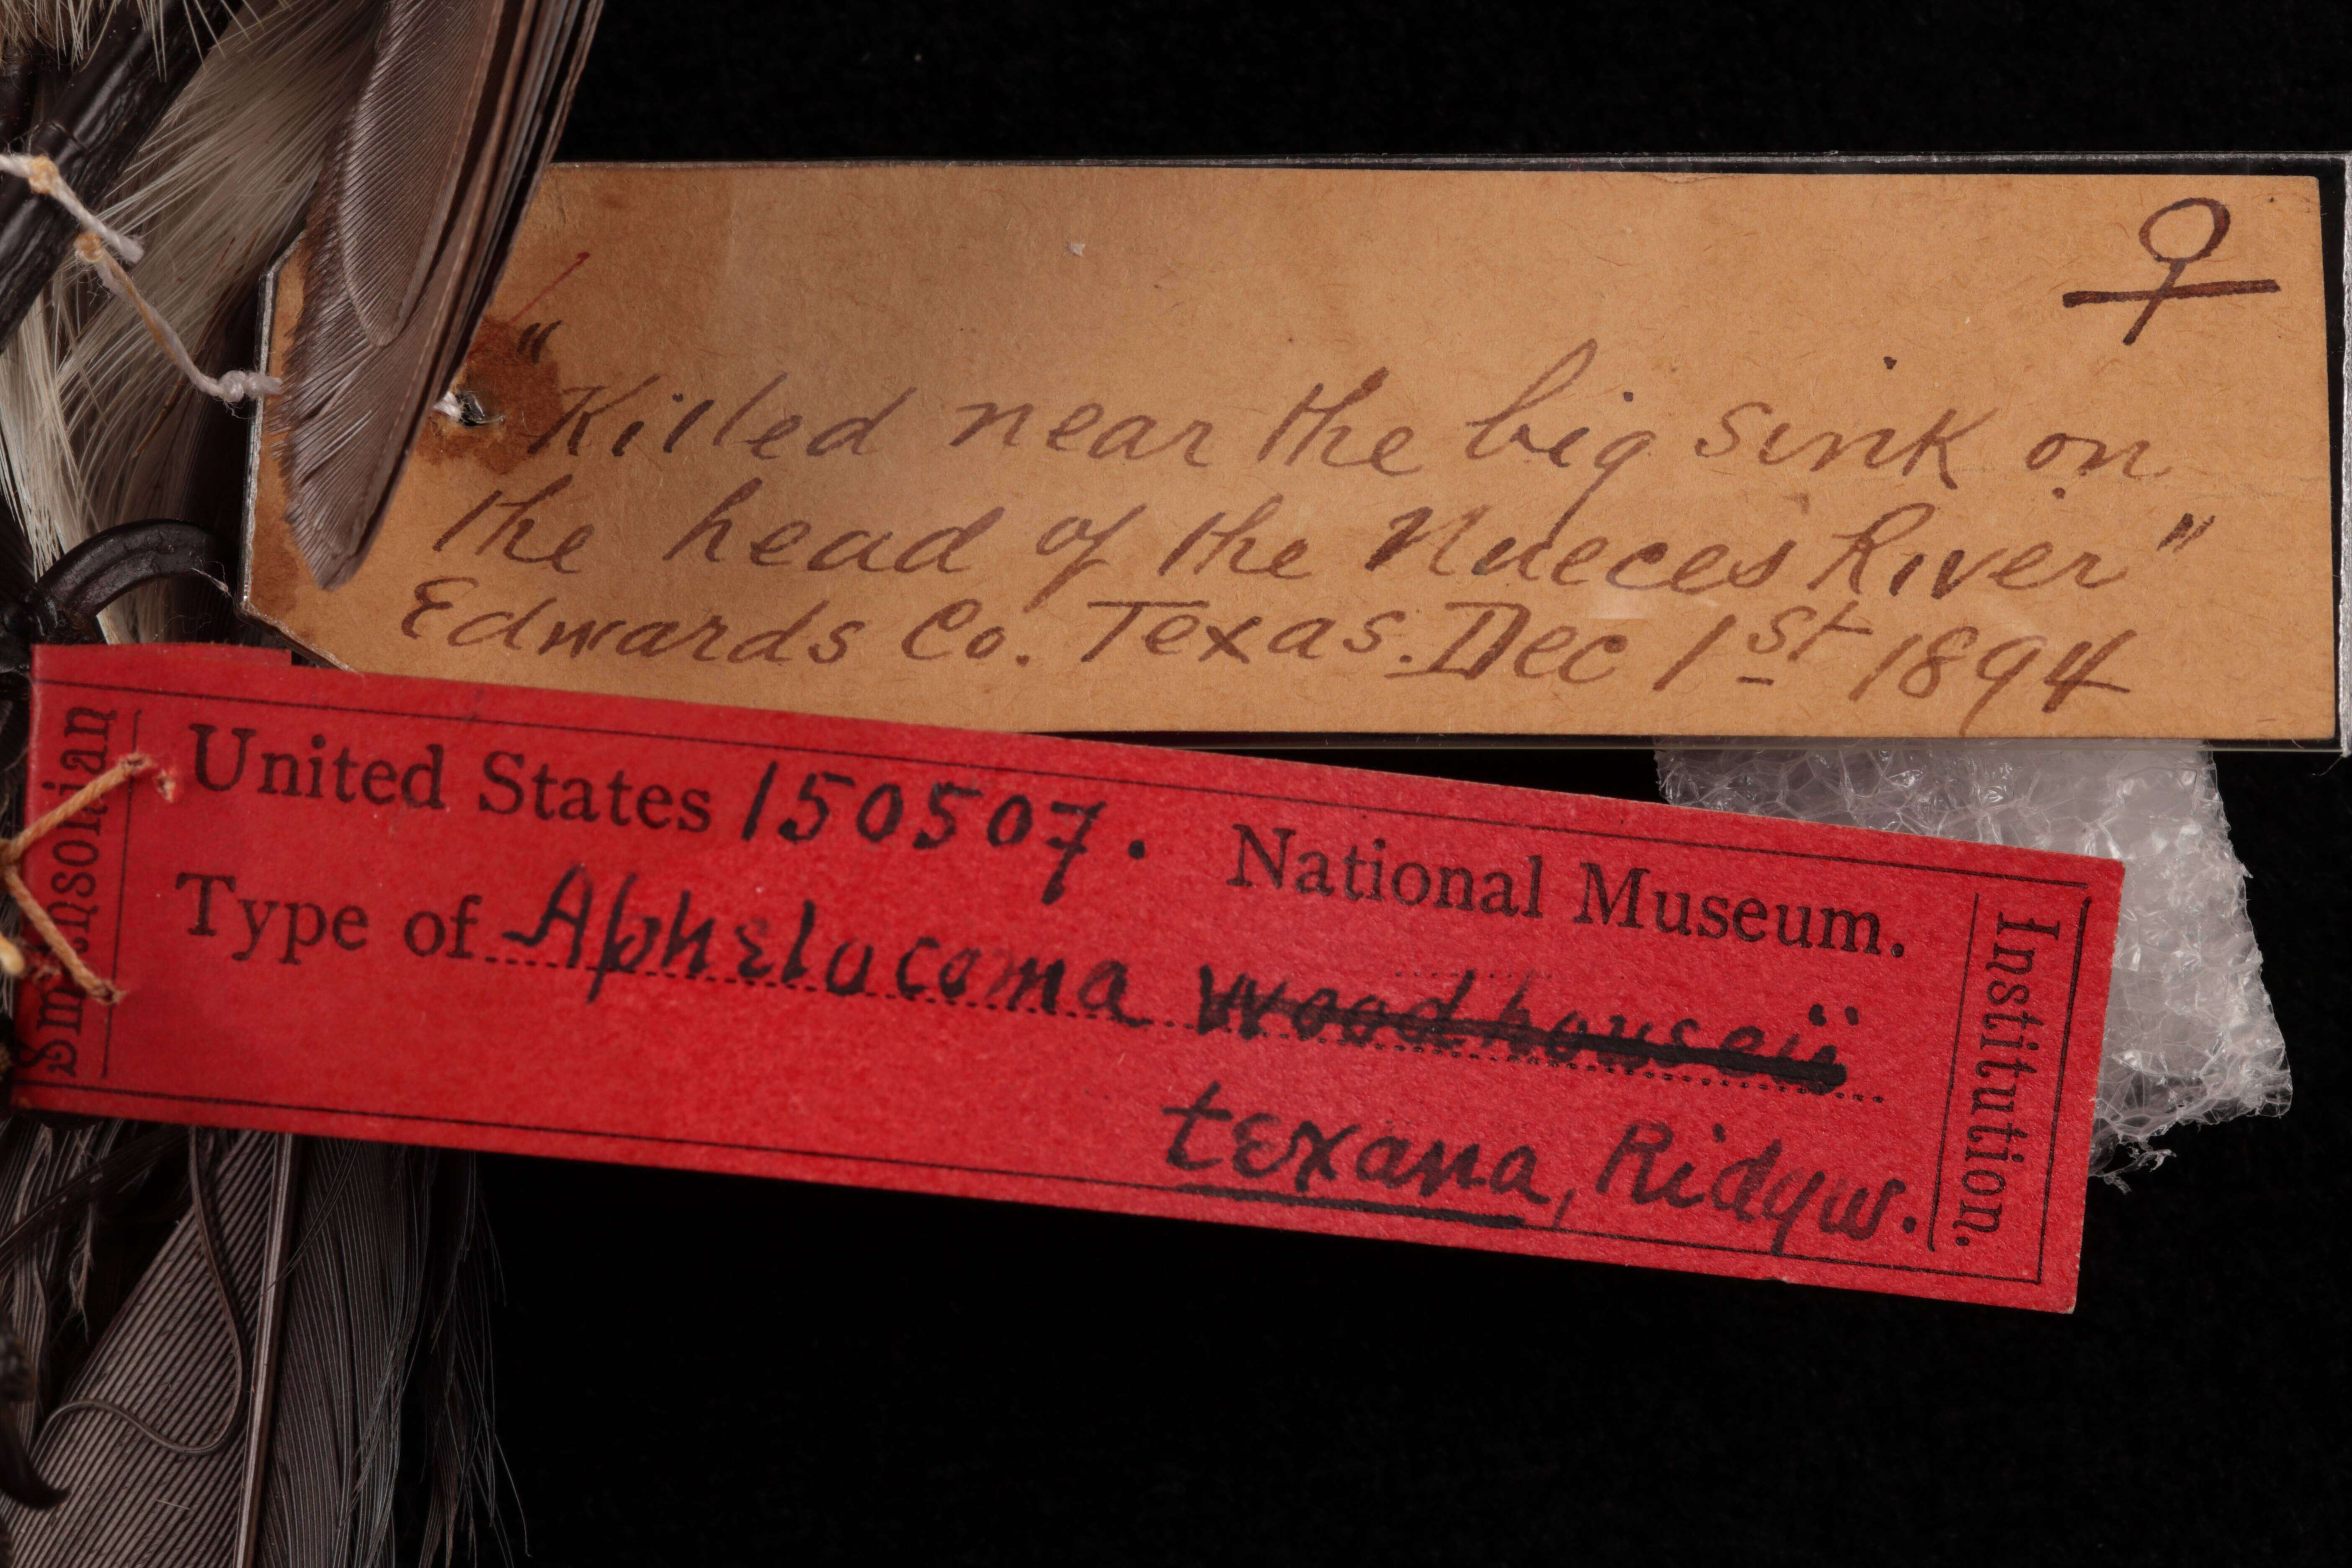 ♀
"Killed near the big sink on
the head of the Nueces River"
Edwards Co. Texas. Dec 1st 1894
Smithsonian
United States 150507. National Museum.
Type of Aphelocoma woodhouseii
texana, Ridgw.
Institution.